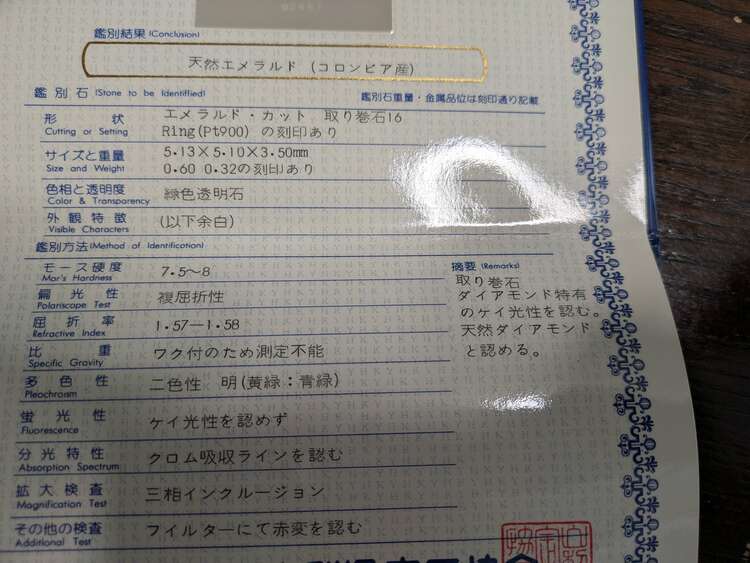 鑑別結果 (Conclusion)
天然エメラルド (コロンビア産)
鑑別石 (Stone to be Identiffied) 鑑別石重量・金属品位は刻印通り記載
形状 エメラルド・カット 取り巻石16
Cutting or Setting Ring(Pt900) の刻印あり
サイズと重量 5.13×5.10×3.50mm
Size and Weight 0.60 0.32の刻印あり
色相と透明度 緑色透明石
Color & Transparency
外観特徴 (以下余白)
Visible Characters
鑑別方法 (Method of Identification)
モース硬度 7.5〜8
Mor's Hardness
偏光性 複屈折性
Polariscope Test
屈折率 1.57—1.58
Refractive Index
比重 ワク付のため測定不能
Specific Gravity
多色性 二色性 明(黄緑:青緑)
Pleochroism
蛍光性 ケイ光性を認めず
Fluorescence
分光特性 クロム吸収ラインを認む
Absorption Spectrum
拡大検査 三相インクルージョン
Magnification Test
その他の検査 フイルターにて赤変を認む
Additional Test
摘要 (Remarks)
取り巻石
ダイアモンド特有
のケイ光性を認む。
天然ダイアモンド
と認める。